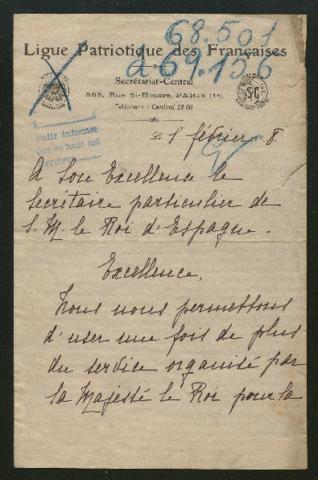 68.501
a 69.156
Ligue Patriotique des Françaises
Secrétariat-Central
368, Rue St-Honoré, PARIS (1er)
Téléphone : Central 29 00
Pedir informes
février 8.
A Son Excellence le
Secrétaire particulier de
S. M. le Roi d'Espagne.
Excellence,
Nous nous permettons
d'user une fois de plus
du service organisé par
Sa Majesté le Roi pour la